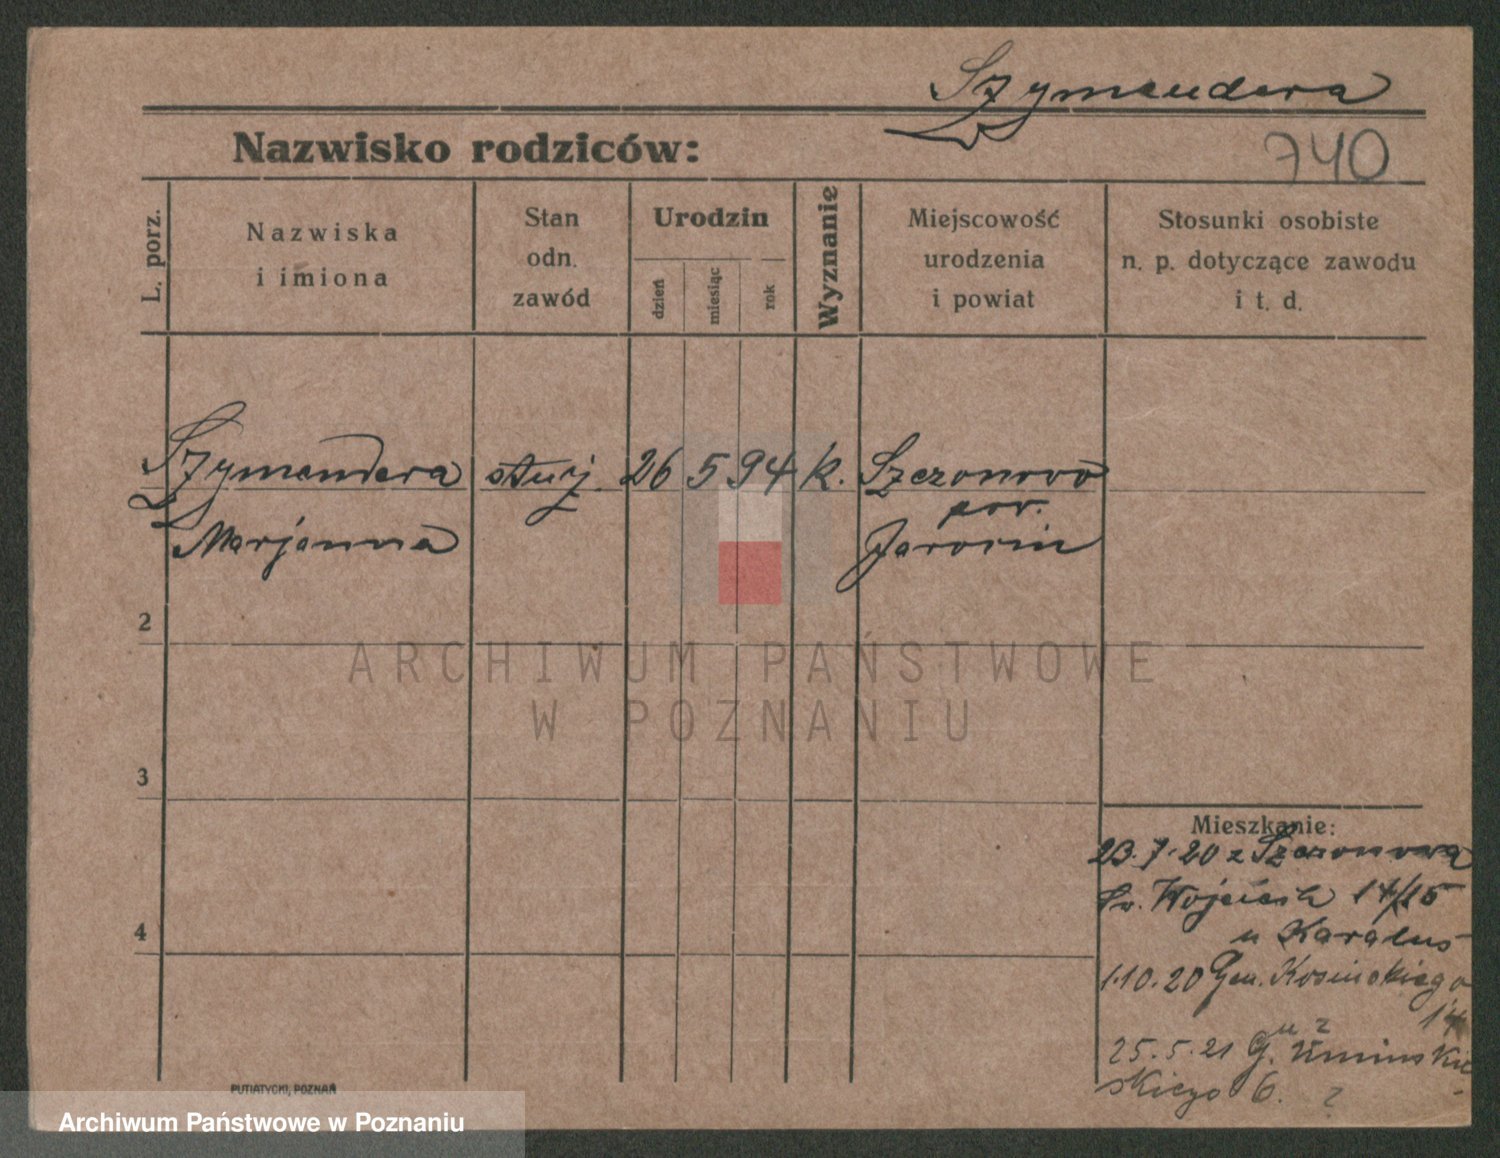 Szymendera
Nazwisko rodziców:
740
L. porz.
Nazwiska
i imiona
Stan
odn.
zawód
Urodzin
dzień
miesiąc
rok
Wyznanie
Miejscowość
urodzenia
i powiat
Stosunki osobiste
n. p. dotyczące zawodu
i t. d.
Szymendera służ. 26 5 94 k. Szczonowo
pow.
Marjanna Jarocin
2
3
4
ARCHIWUM PAŃSTWOWE
W POZNANIU
Mieszkanie:
23.7.20 z Szczonowa
Św. Wojciech 14/15
u Karalus
1.10.20 Gen. Kosinskiego
14
u z
25.5.21 G. Umins
skiego 6. ?
PUTIATYCKI, POZNAŃ
Archiwum Państwowe w Poznaniu